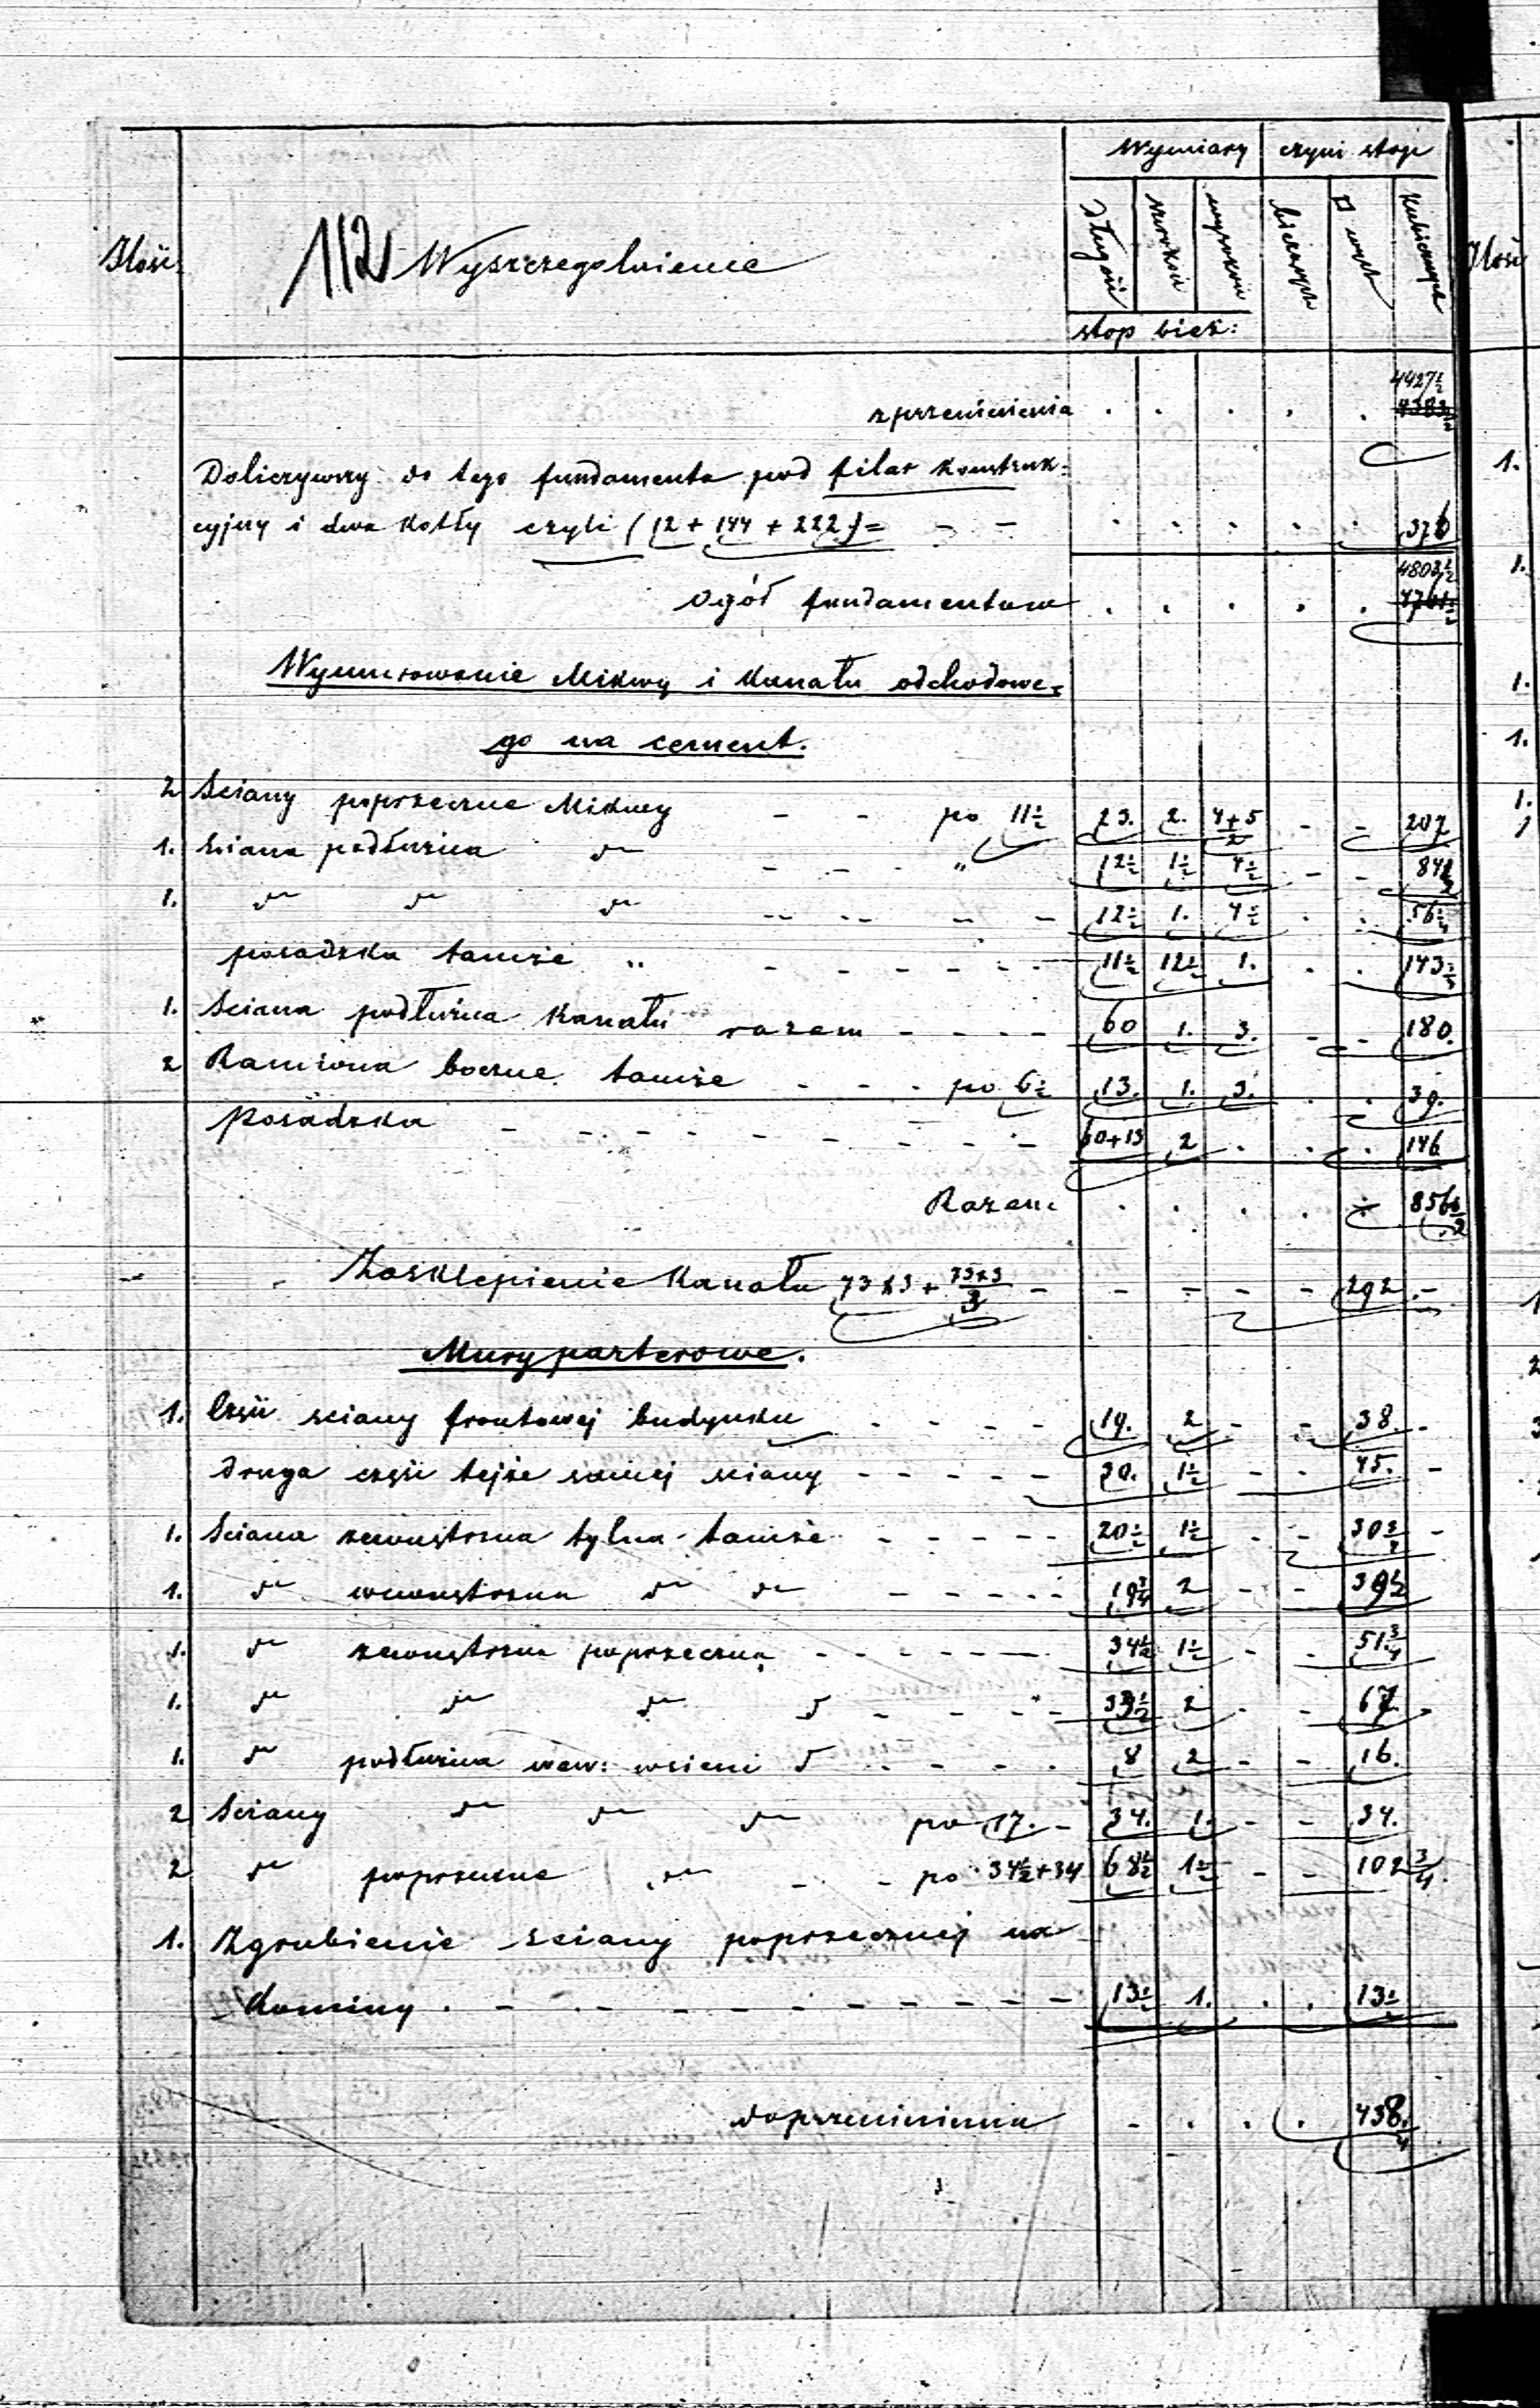 Wymiary czyni stóp
Ilość 112 Wyszczególnienie długość szerokość wysokość bieżących □ wych kubicznych Ilość
stop bież:
4427½
zprzeniesienia . . . . . 4383½
Doliczywszy do tego fundamenta pod filar konstruk= 1.
cyjny i dwa kotły czyli (12 + 144 + 222) = - - . . . . . 376
4803½ 1.
Ogół fundamentów . . . . . 4761½
Wymurowanie Mikwy i Kanału odchodowe= 1.
go na cement. 1.
2 Sciany poprzeczne Mikwy - - po 11½ 23. 2. 4+5/2 - - 207 1.
1. sciana podłużna dto - - - " 12½ 1½ 4½ - - 84½
1. dto dto dto - - - - 12½ 1. 4½ . . 56¼
posadzka tamże " - - - - - 11½ 12½ 1. . . 143½
1. Sciana podłużna Kanału razem - - - - 60 1. 3. - - 180.
2 Ramiona boczne tamże - - - po 6½ 13. 1. 3. . . 39.
Posadzka - - - - - - - - - - 60+13 2 . . . 146
Razem . . . . 856½
Zasklepienie Kanału 73x3 + 73x3/3 - - - - - 292 -
Mury parterowe.
1. Część sciany frontowej budynku - - - - 19. 2 - - 38. -
druga część tejże samej sciany - - - - - 30. 1½ - - 45. -
1. Sciana zewnętrzna tylna tamże - - - - - 20½ 1½ - - 30¾ -
1. dto wewnętrzna dto dto - - - - - 19¾ 2 - - 39½
1. dto zewnętrzna poprzeczna - - - - - - 34½ 1½ - . 51¾
1. dto dto dto d - - - - 33½ 2 - - 67.
1. dto podłużna wew: wsieni d - - - - 8 2 - - 16.
2 Sciany dto dto dto po 17. - 34. 1. - - 34.
2 dto poprzeczne dto - - po 34½+34 68½ 1½ - - 102¾
1. Zgrubienie sciany poprzecznej na
kominy . - - - - - - - - - 13½ 1. . . 13½
doprzeniesienia - . . . 438¼